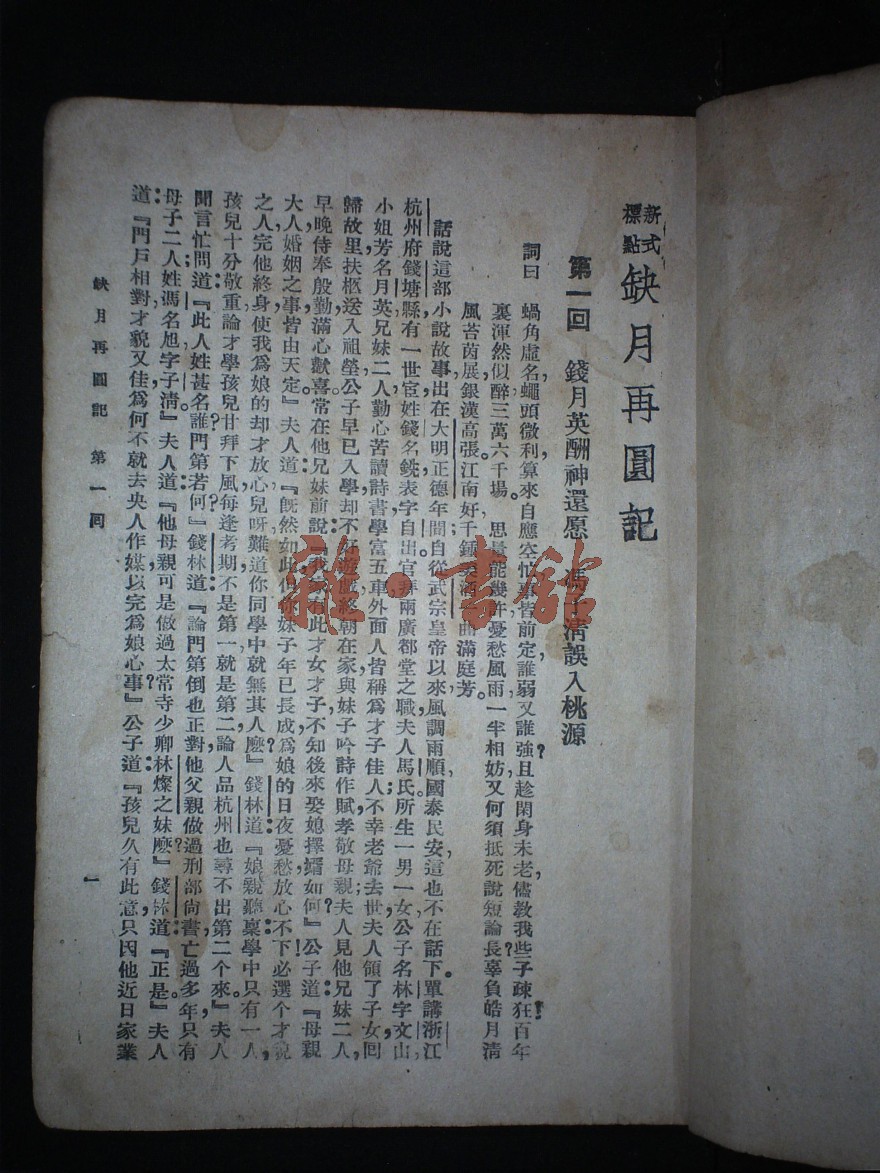 新式標點 缺月再圓記
第一回 錢月英酬神還愿 馮子清誤入桃源
詞曰 蝸角虛名，蠅頭微利，算來自應空忙。事皆前定，誰弱又誰強？且趁閑身未老，儘教我些子疎狂！百年
裏渾然似醉，三萬六千場。 思量能幾許？憂愁風雨，一半相妨，又何須抵死說短論長？辜負皓月清
風，苔茵展，銀漢高張。江南好，千鍾美酒，一曲滿庭芳。
話說這部小說故事，出在大明正德年間。自從武宗皇帝以來，風調雨順，國泰民安，這也不在話下。單講浙江
杭州府錢塘縣有一世宦，姓錢名銑，表字自出，官拜兩廣都堂之職，夫人馬氏，所生一男一女，公子名林字文山，
小姐芳名月英，兄妹二人勤心苦讀詩書，學富五車，外面人皆稱爲才子佳人；不幸老爺去世，夫人領了子女回
歸故里，扶柩送入祖塋。公子早已入學，却不好遊戲，終朝在家與妹子吟詩作賦，孝敬母親；夫人見他兄妹二人，
早晚侍奉殷勤，滿心歡喜，常在他兄妹前說：『我家有此才女才子，不知後來娶媳擇婿如何？』公子道：『母親
大人！婚姻之事，皆由天定。』夫人道：『旣然如此，但你妹子年已長成，爲娘的日夜憂愁，放心不下，必選個才貌
之人，完他終身，使我爲娘的却才放心。兒呀！難道你同學中就無其人麽？』錢林道：『娘親聽稟：學中只有一人，
孩兒十分敬重，論才學孩兒甘拜下風，每逢考期，不是第一就是第二；論人品杭州也尋不出第二個來。』夫人
聞言忙問道：『此人姓甚名誰？門第若何？』錢林道：『論門第倒也正對，他父親做過刑部尙書，亡過多年，只有
母子二人，姓馮名旭字子淸。』夫人道：『他母親可是做過太常寺少卿林燦之妹麽？』錢林道：『正是。』夫人
道：『門戶相對，才貌又佳，爲何不就去央人作媒，以完爲娘心事？』公子道：『孩兒久有此意，只因他近日家業
缺月再圓記 第一回
一
雜·書館